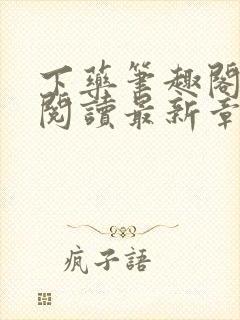 下藥筆趣閣
閱讀最新章
瘋子語